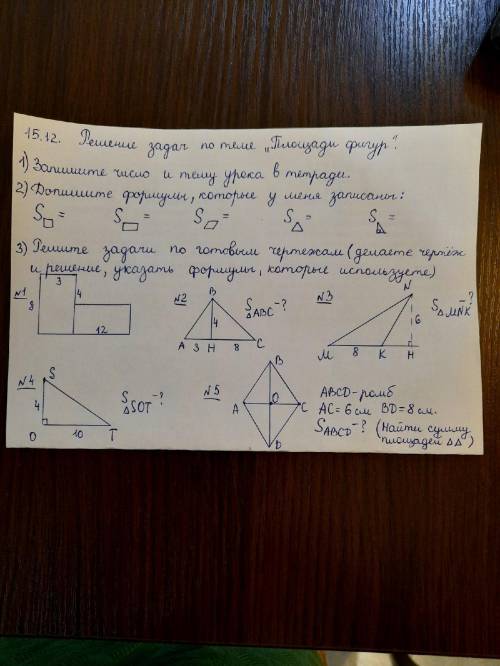 15.12. Решение задач по теме „Площади фигур".
1) Запишите число и тему урока в тетради.
2) Допишите формулы, которые у меня записаны:
S□ = S▭ = S▱ = S△ = S◺ =
3) Решите задачи по готовым чертежам (делаете чертёж
и решение, указать формулы, которые используете)
№1
3
8
4
12
№2
B
4
A 3 H 8 C
S△ABC - ?
№3
N
6
M 8 K H
S△MNK - ?
№4
S
4
O 10 T
S△SOT - ?
№5
B
A O C
D
ABCD - ромб
AC = 6 см BD = 8 см.
SABCD - ? (Найти сумму
площадей △△)